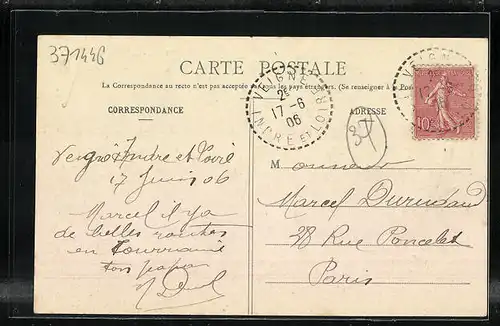 371446
CARTE POSTALE
La Correspondance au recto n'est pas acceptée par tous les pays étrangers. (Se renseigner à la Poste
CORRESPONDANCE
ADRESSE
VEIGNÉ
2E
17-6
06
INDRE ET LOIRE
VEIGNÉ
10c
37
Veigné Indre et Loire
17 Juin 06
Marcel il y a
de belles roches
en Touraine
ton papa
M Monsieur
Marcel Durand
28 Rue Poncelet
Paris